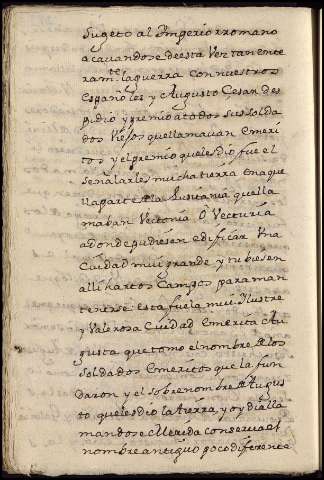 Sugeto al Ymperio rromano
acavandose de esta vez tan ente
ramte. la guerra con nuestros
Españoles y Augusto Cesar des
pidio y premio a todos sus solda
dos viejos que llamavan Emeri
tos y el premio que les dio fue el
señalarles mucha tierra en aque
lla parte de la Lusitania que lla
maban Vectonia O Vecturia
adonde pudiesen edificar una
Ciudad mui grande y tubiesen
alli hartos Campos para man
tenerse esta fue la mui Ilustre
y Valerosa Ciudad Emerita Au
gusta que tomo el nombre de los
soldados Emeritos que la fun
daron y el sobrenombre de Augus
to que les dio la tierra, y oy dia lla
mandose Merida conserva el
nombre antiguo poco diferente